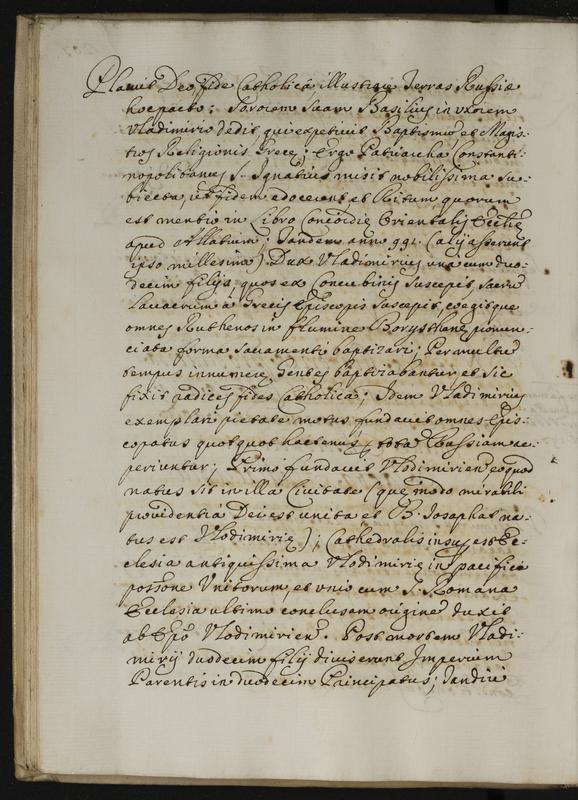 Placuit Deo, fide Catholica illustrare Terras Russiæ
hoc pacto: Sororem suam Basilius in vxorem
Vladimirio dedit, qui expetivit Baptismũ, et Magis-
tros Religionis Grecę; Ergo Patriarcha Constanti-
nopolitanus S. Ignatius misit nobilissima su-
biecta, ut fidem edocerent, et Ritum, quorum
est mentio in Libro Concordię Orientalis Ecclię
apud Allatium; Tandem anno 991. (alij asserunt
ipso millesimo) Dux Vladimirius una cum duo-
decim filijs, quos ex Concubinis suscepit, Sacrũ
Lavacrum a Grecis Episcopis suscepit, coegitque
omnes Ruthenos in flumine Borysthene, pronun-
ciata forma sacramenti baptizari; Per multũ
tempus innumerę Gentes baptizabantur, et sic
fixit radices fides Catholica; Idem Vladimirius
exemplari pietate motus fundavit omnes Epis-
copatus quotquot hactenus p tota Russiam re-
periuntur; Primo fundavit Vlodimirien eo quod
natus sit in illa Civitate (quę modo mirabili
providentia Dei est unita et B. Josaphat na-
tus est Vlodimirię); Cathedralis insup est Ec-
clesia antiquissima Vlodimirię in pacifica
possone Unitorum, et unio cum S. Romana
Ecclesia ultimo conclusam originẽ duxit
ab Epõ Vlodimirien. Post mortem Vladi-
mirij duodecim filij diviserunt Imperium
Parentis in duodecim Principatus; Tandiu